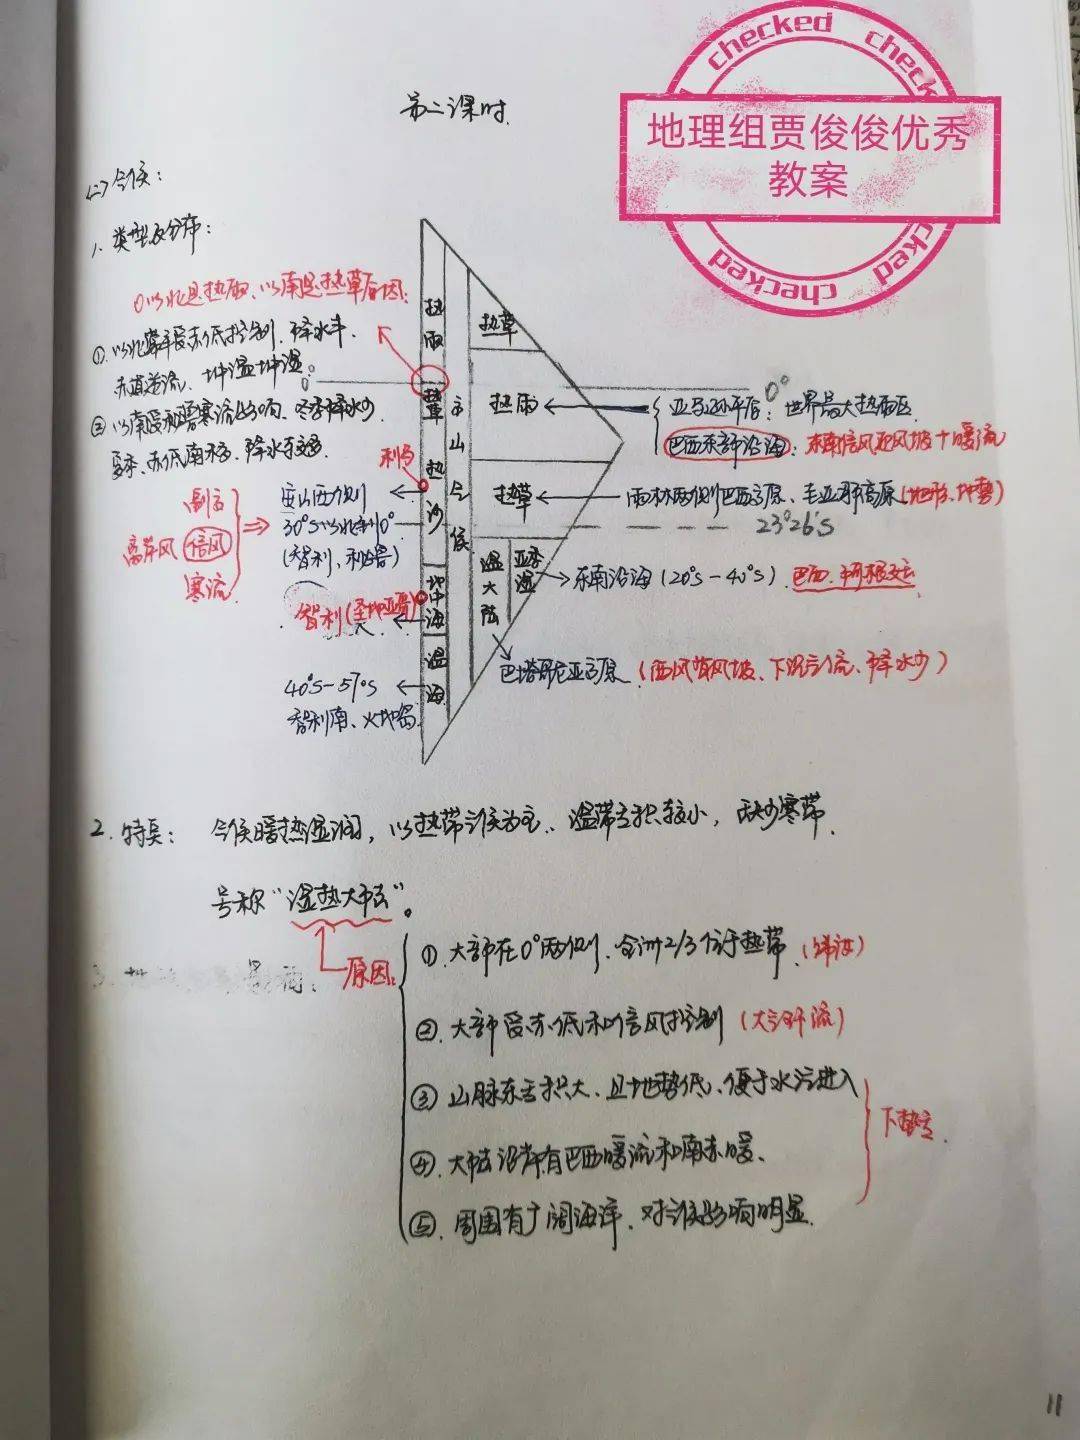 checked checked
地理组贾俊俊优秀
教案
checked checked
第二课时
(二)气候:
1、类型及分布:
0°以北是热雨、以南是热草原因:
①以北常年受赤低控制、降水丰、
赤道逆流、增温增湿。
②以南受秘鲁寒流影响、冬季降水少
夏季、赤低南移、降水较多
0°
0°
热雨
热草
热沙
地中海
温海
高山气候
热草
热雨
热草
温大陆
亚季湿
亚马孙平原:世界最大热雨区
巴西东部沿海:东南信风迎风坡+暖流
雨林两侧巴西高原、圭亚那高原(地形、地势)
23°26′S
东南沿海(20°S-40°S)巴西、阿根廷
巴塔哥尼亚高原(西风背风坡、下沉气流、降水少)
利马
副高
离岸风 信风
寒流
安山西侧
30°S以北到0°
(智利、秘鲁)
智利(圣地亚哥)
40°S-57°S
智利南、火地岛
2、特点: 气候暖热湿润,以热带气候为主、温带面积较小,缺少寒带
号称“湿热大陆”。
原因:
①、大部在0°两侧、全洲2/3位于热带(纬度)
②、大部受赤低和信风控制(大气环流)
③、山脉东面积大、且地势低、便于水汽进入
④、大陆沿岸有巴西暖流和南赤暖、
⑤、周围有广阔海洋、对气候影响明显
下垫面
11